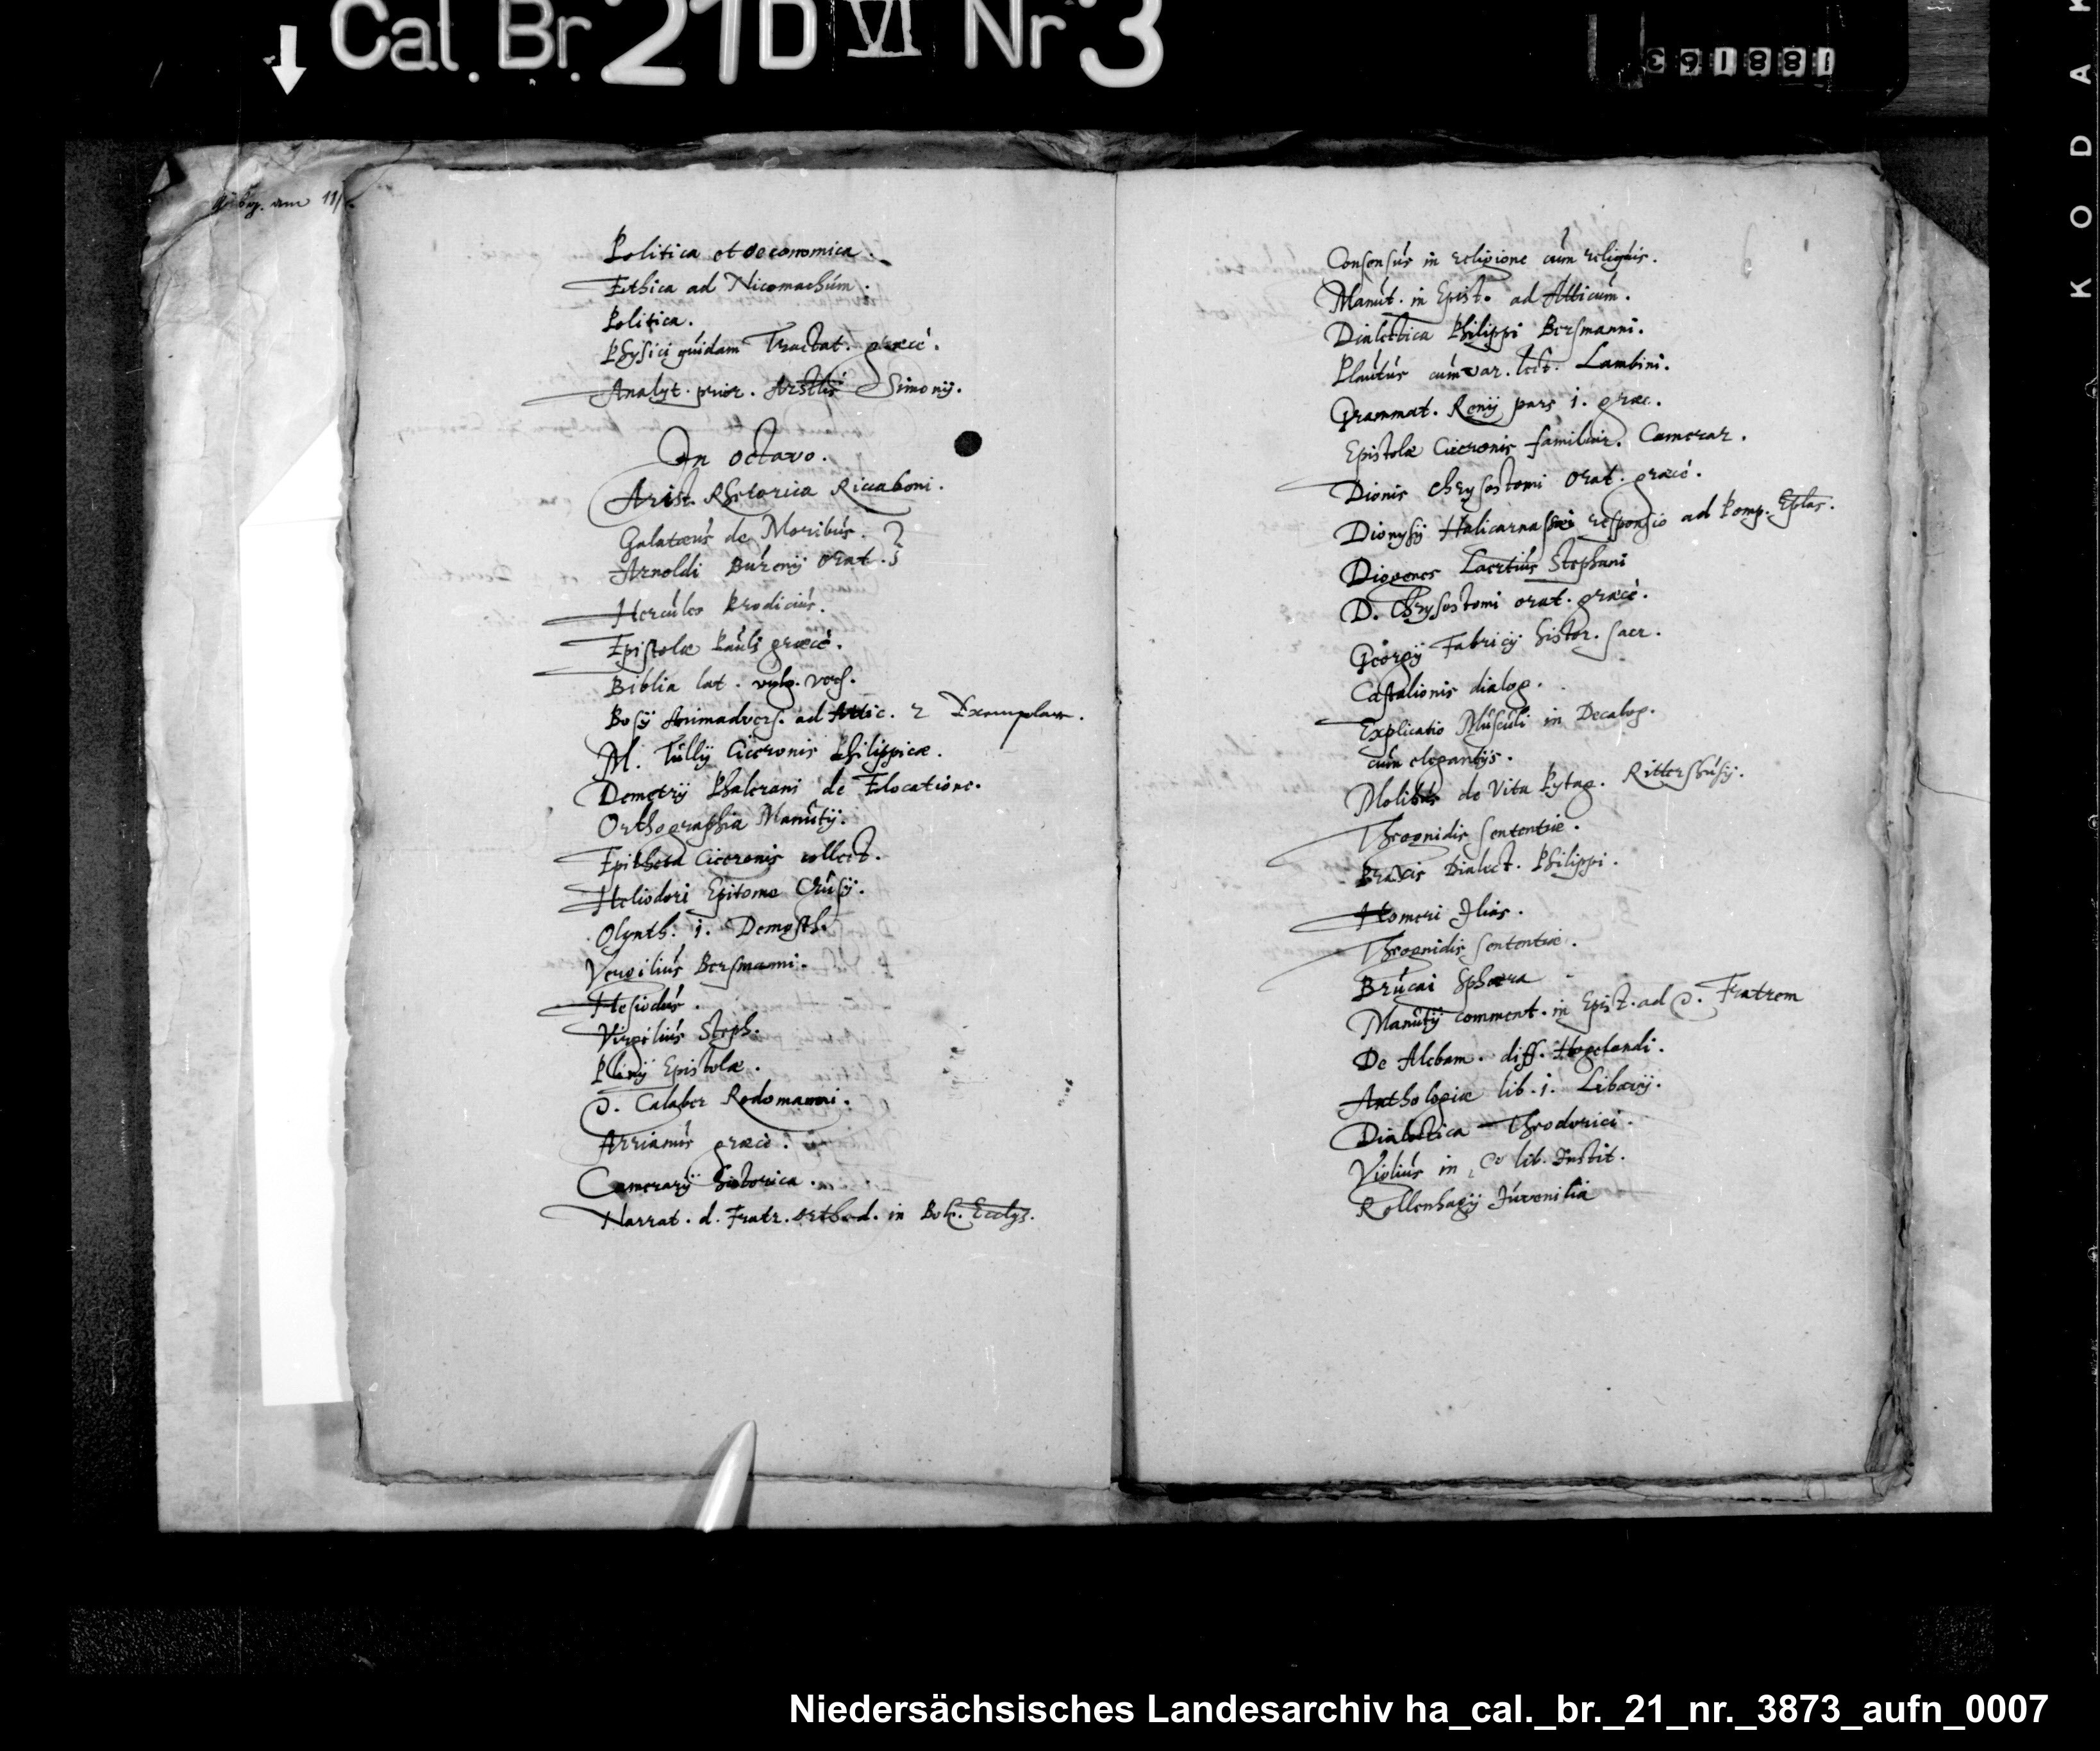 Cal. Br. 21 D VI Nr 3
1881163
KODAK
Politica et oeconomica.
Ethica ad Nicomachum.
Politica.
Physici quidam Tractat. graecè.
Analyt. prior. Arstlis Simonij.
In octavo.
Arist. Rhetorica Riccaboni.
Galataeus de Moribus.
Arnoldi Burenij orat.
Hercules Prodicius.
Epistolae Pauli graecè.
Biblia lat. vulg. vers.
Bosij Animadvers. ad Attic. 2 Exemplar.
M. Tullij Ciceronis Philippicae.
Demetrij Phalerani de Elocatione.
Orthographia Manutij.
Epitheta Ciceronis collect.
Heliodori Epitome Crusij.
Olynth. 1. Demosth.
Vergilius Bersmanni.
Hesiodus.
Virgilius Steph.
Plinij Epistolae.
Q. Calaber Rodomanni.
Arrianus graecè.
Camerarij historica.
Narrat. d. Fratr. orthod. in Boh. Ecclijs.
Consensus in religione cum religiis.
Manut. in Epist. ad Atticum.
Dialectica Philippi Bersmanni.
Plautus cum var. lect. Lambini.
Grammat. Renij pars 1. graec.
Epistolae Ciceronis familiar. Camerar.
Dionis Chrysostomi Orat. graecè.
Dionysij Halicarnassei responsio ad Pomp. Eplas.
Diogenes Laertius Stephani
D. Chrysostomi orat. graecè.
Georgij Fabricij histor. sacr.
Castalionis dialog.
Explicatio Musculi in Decalog.
cum elegantijs.
Molibus de Vita Pytag. Rittershusij.
Theognidis sententiae.
Praxis Dialect. Philippi.
Homeri Ilias.
Theognidis sententiae.
Brucaei Sphaera
Manutij comment. in Epist. ad Q. Fratrem
De Alcbam. diff. Hogelandi.
Anthologiae lib. 1. Libarij.
Dialectica Theodorici.
Viglius in lib. Instit.
Rollenhagij Juvenilia
Niedersächsisches Landesarchiv ha_cal._br._21_nr._3873_aufn_0007